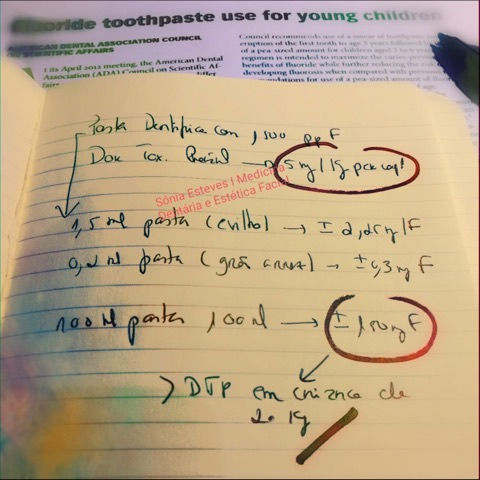 fluoride toothpaste use for young children
AMERICAN DENTAL ASSOCIATION COUNCIL
ON SCIENTIFIC AFFAIRS
t its April 2012 meeting, the American Dental
Association (ADA) Council on Scientific Af-
Council recommends use of a smear of toothpaste
eruption of the first tooth to age 3 years followed
of a pea-sized amount for children aged 3 to 6
regimen is intended to maximize the caries-
benefits of fluoride while further reducing the
developing fluorosis when compared with previous
for use of a pea-sized amount of
Pasta Dentífrica con 1500 pp F
Dox Tox. → 5 mg / Kg
Sónia Esteves I Medicina
Dentária e Estética Facial
1,5 ml pasta (ervilha) → ± 2,25 mg F
0,2 ml pasta (grão arroz) → ± 0,3 mg F
100 ml pasta 100 ml → ± 150 mg F
> DTP em criança de
20 Kg